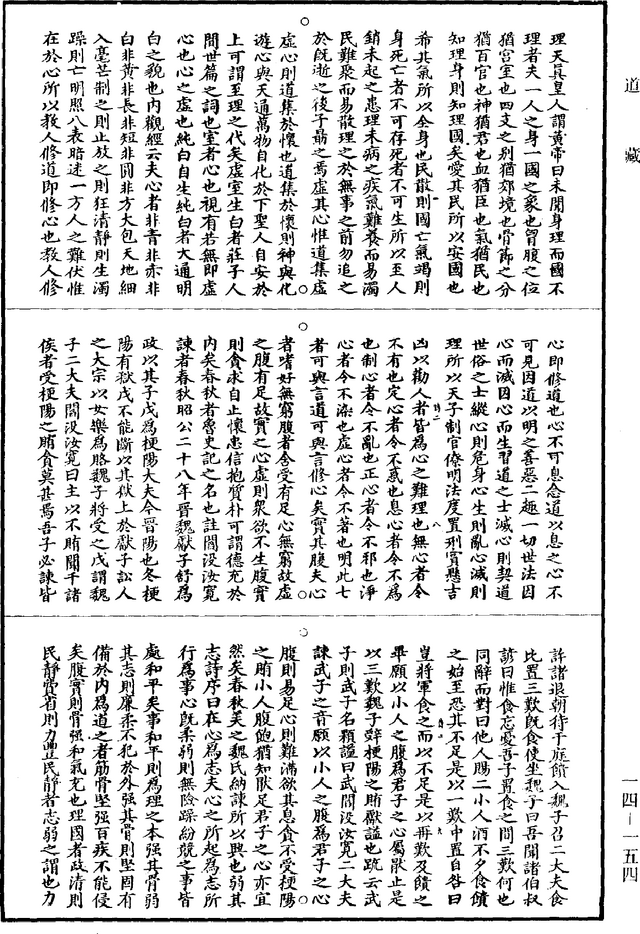 道藏
理天真皇人謂黃帝曰未聞身理而國不
理者夫一人之身一國之象也胃腹之位
猶宮室也四支之别猶郊境也骨節之分
猶百官也神猶君也血猶臣也氣猶民也
知理身則知理國矣愛其民所以安國也
希其氣所以全身也民散則國亡氣竭則
身死亡者不可存死者不可生所以至人
銷未起之患理未病之疾氣難養而易濁
民難聚而易散理之於無事之前勿追之
於旣逝之後子勗之焉虛其心惟道集虛
虛心則道集於懷也道集於懷則神與化
遊心與天通萬物自化於下聖人自安於
上可謂至理之代矣虛室生白者莊子人
間世篇之詞也室者心也視有若無即虛
心也心之虛也純白自生純白者大通明
白之貌也内觀經云夫心者非青非赤非
白非黃非長非短非圓非方大包天地細
入毫芒制之則止放之則狂清靜則生濁
躁則亡明照八表暗迷一方人之難伏惟
在於心所以教人修道即修心也教人修
心即修道也心不可息念道以息之心不
可見因道以明之善惡二趣一切世法因
心而滅因心而生習道之士滅心則契道
世俗之士縱心則危身心生則亂心滅則
理所以天子制官僚明法度置刑賞懸吉
凶以勸人者皆為心之難理也無心者令
不有也定心者令不惑也息心者令不為
也制心者令不亂也正心者令不邪也淨
心者令不染也虛心者令不著也明此七
者可與言道可與言修心矣實其腹夫心
者嗜好無窮腹者含受有足心無窮故虛
之腹有足故實之心虛則衆欲不生腹實
則貪求自止懷忠信抱質朴可謂德充於
内矣春秋者魯史記之名也註閻没汝寬
諫者春秋昭公二十八年晉魏獻子舒為
政以其子戊為梗陽大夫令晉陽也冬梗
陽有獄戊不能斷以其獄上於獻子訟人
之大宗以女樂為賂魏子將受之戊謂魏
子二大夫閻没汝寬曰主以不賄聞于諸
侯若受梗陽之賄貪莫甚焉吾子必諫皆
許諾退朝待于庭饋入魏子召二大夫食
比置三歎旣食使坐魏子曰吾聞諸伯叔
諺曰惟食忘憂吾子置食之間三歎何也
同辭而對曰他人賜二小人酒不夕食饋
之始至恐其不足是以一歎中置自咎曰
豈將軍食之而以不足是以再歎及饋之
畢願以小人之腹為君子之心屬猒止是
以三歎魏子辭梗陽之賄獻謚也疏云武
子則武子名顆謚曰武閻没汝寬二大夫
諫武子之音願以小人之腹為君子之心
腹則易足心則難滿欲其息貪不受梗陽
之賄小人腹飽猶知猒足君子之心亦宜
然矣春秋美之魏氏納諫所以興也弱其
志詩序曰在心為志夫心之所起為志所
行為事心旣柔弱則無險躁紛競之事皆
處和平矣事和平則為理之本强其骨弱
其志則廉柔不犯於外强其骨則堅固有
備於内為道之者筋骨堅强百疾不能侵
矣腹實則骨强和氣充也理國者政清則
民靜費省則力豐民靜者志弱之謂也力
一四—一五四